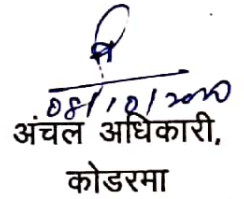 08/10/2020
अंचल अधिकारी,
कोडरमा